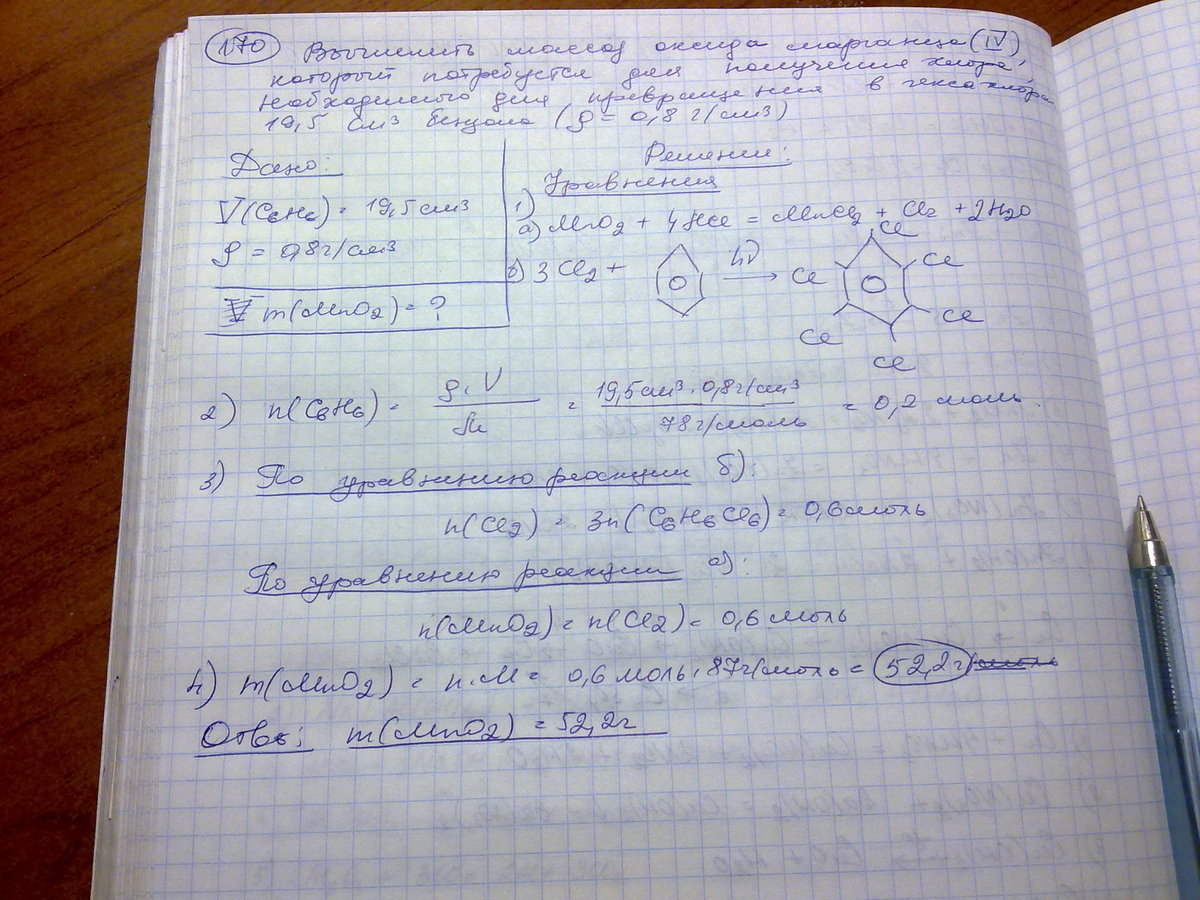 170 Вычислить массу оксида марганца (IV)
который потребуется для получения хлора,
необходимого для превращения в гексахлоран
19,5 см³ бензола (ρ = 0,8 г/см³)
Дано:
V(C6H6) = 19,5 см³
ρ = 0,8 г/см³
m(MnO2) = ?
Решение:
Уравнения
1)
а) MnO2 + 4HCl = MnCl2 + Cl2 + 2H2O
б) 3Cl2 + hν → Cl Cl Cl Cl Cl Cl
2) n(C6H6) = ρ·V / M = 19,5 см³ · 0,8 г/см³ / 78 г/моль = 0,2 моль
3) По уравнению реакции б):
n(Cl2) = 3n(C6H6Cl6) = 0,6 моль
По уравнению реакции а):
n(MnO2) = n(Cl2) = 0,6 моль
4) m(MnO2) = n·M = 0,6 моль · 87 г/моль = 52,2 г/моль
Ответ: m(MnO2) = 52,2 г